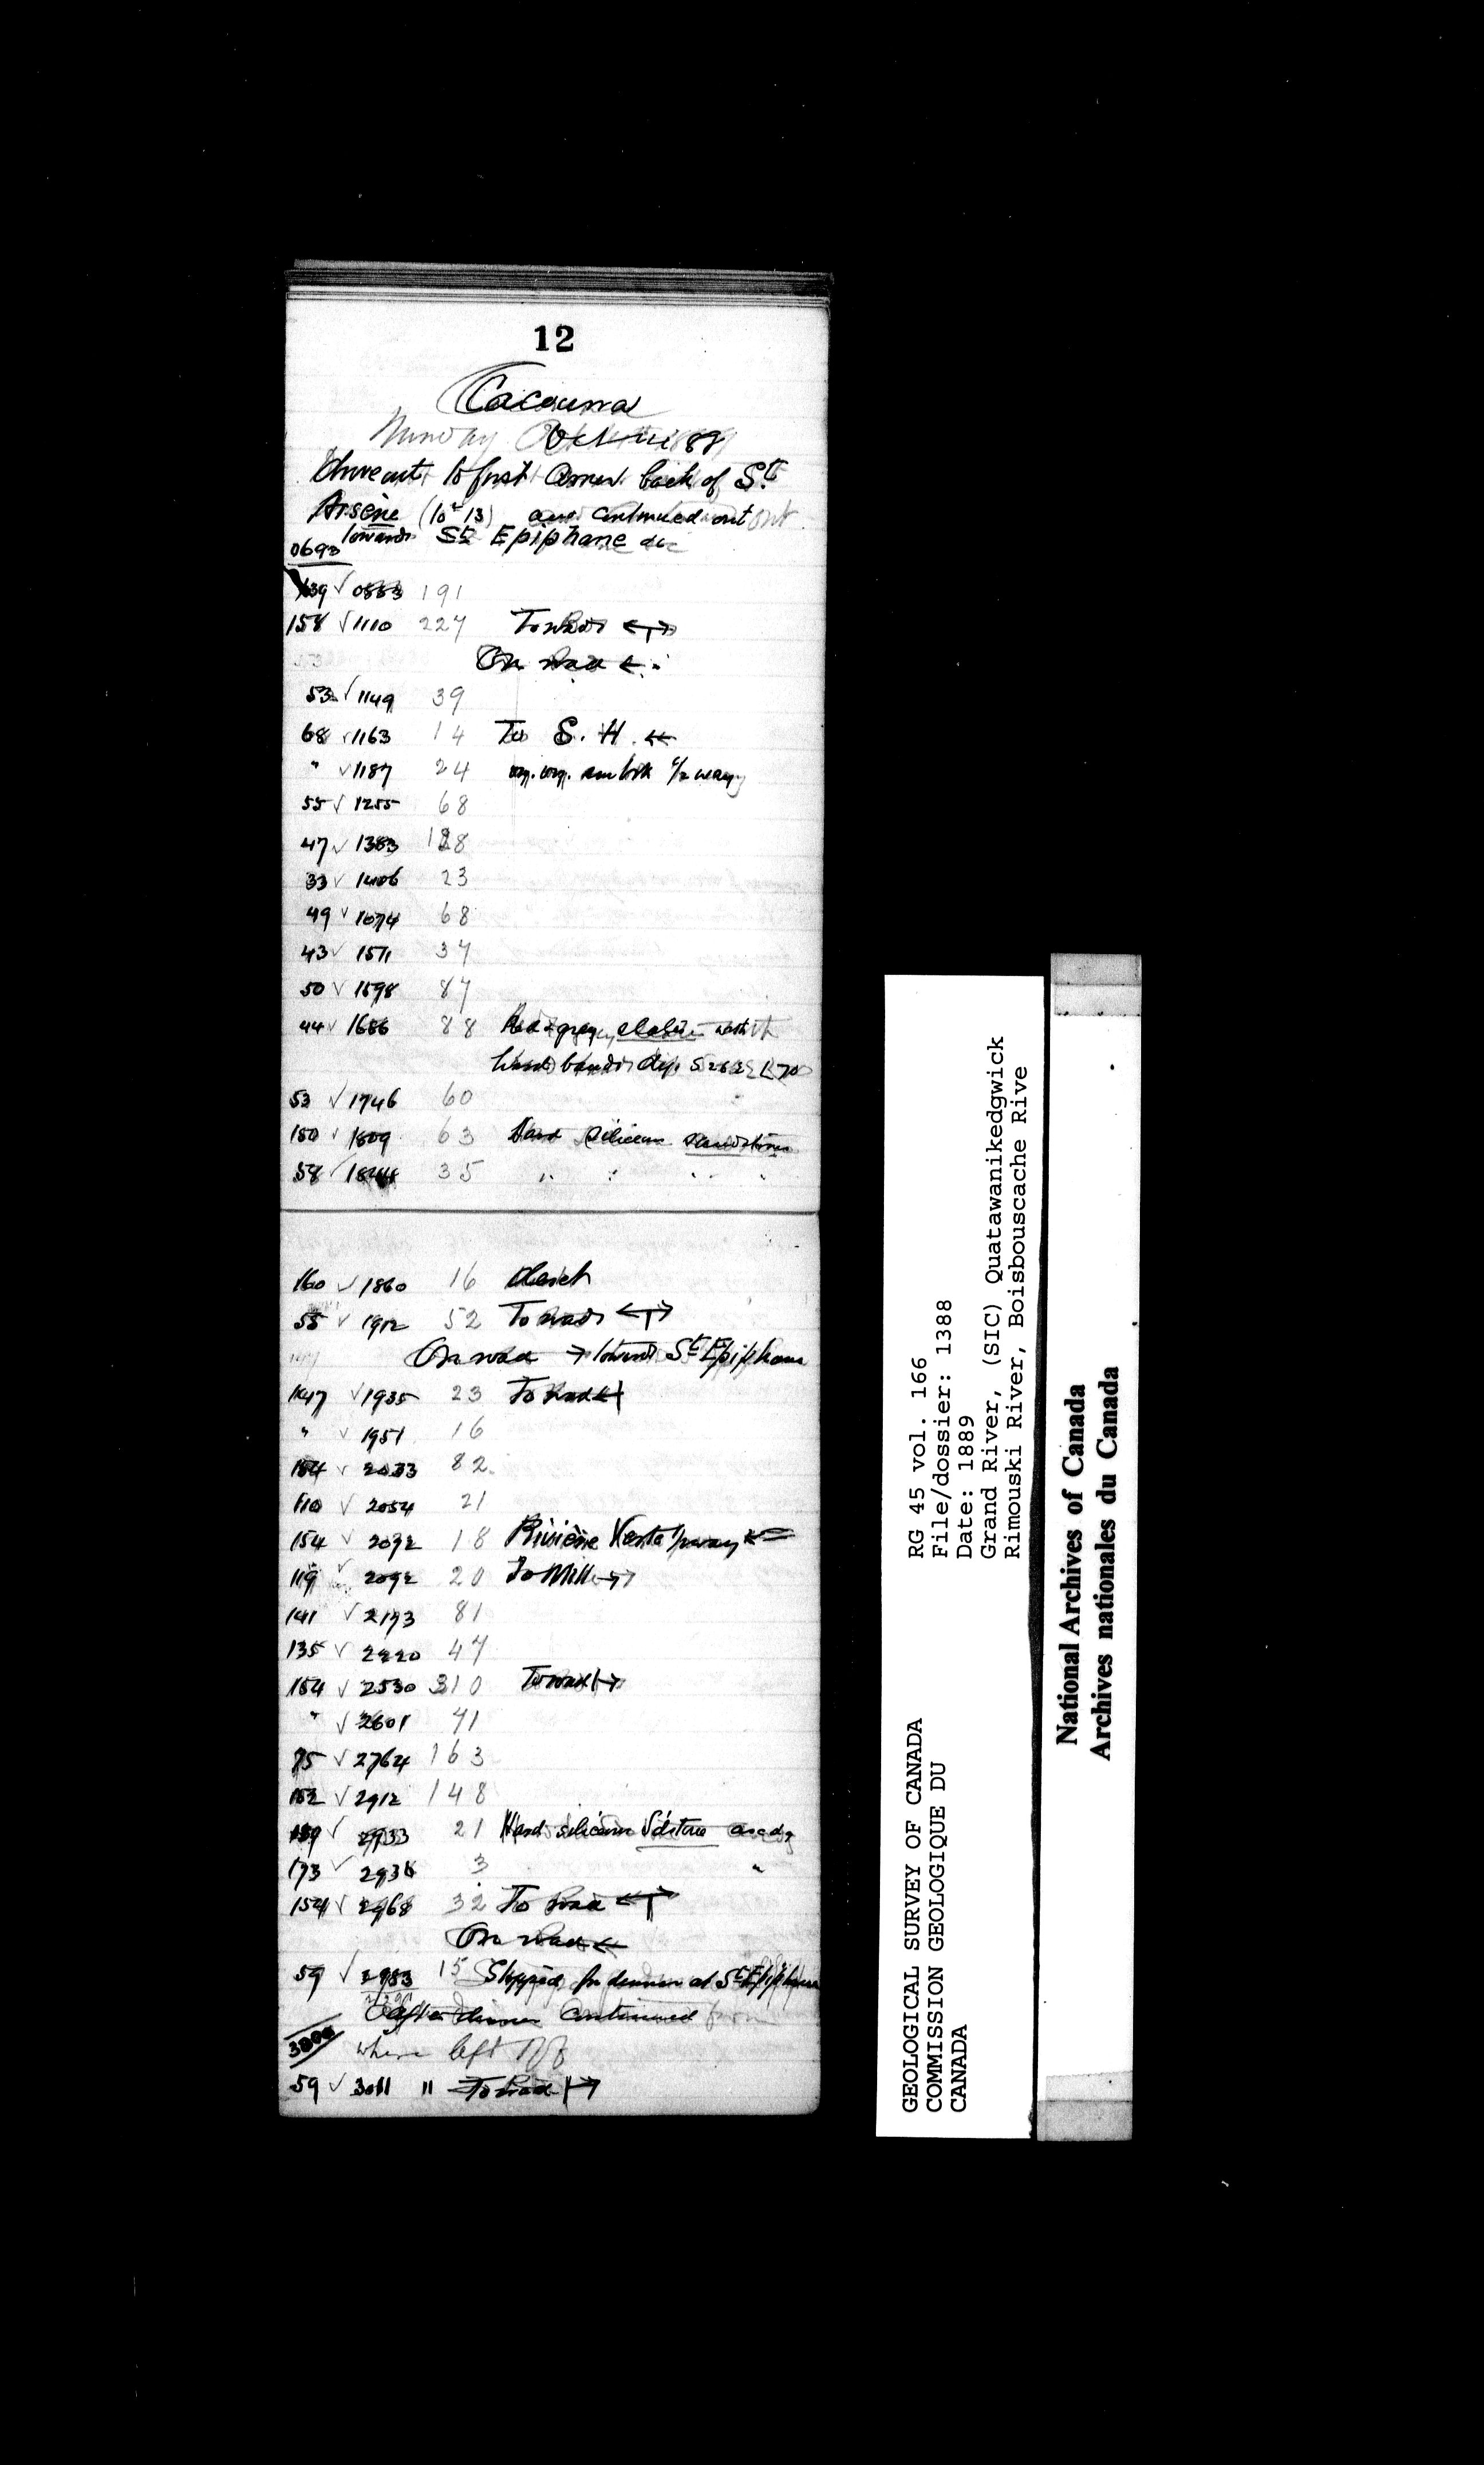 12
Cacouna
Oct 89
Drove out to first Conces. back of St.
Arsène (lot 13) and continued out
towards St Epiphane &c
0693
139 √ 0883 191
158 √ 1110 227 To road ←┬→
On road ←
53 √ 1149 39
68 √ 1163 14 To S. H. ←
" √ 1187 24
55 √ 1255 68
47 √ 1383 128
33 √ 1406 23
49 √ 1474 68
43 √ 1511 37
50 √ 1598 87
44 √ 1686 88 Red & grey slates with
hard bands dip. S 26 E < 70
53 √ 1746 60
150 √ 1809 63 Hard silicious sandstone
58 √ 1844 35 " " " "
160 √ 1860 16 Church
55 √ 1912 52 To road ←┬→
On road → towards St Epiphane
147 √ 1935 23 To road ←|
" √ 1951 16
154 √ 2033 82
110 √ 2054 21
154 √ 2072 18 Rivière Verte ½ way ←
119 √ 2092 20 To Mill →
141 √ 2173 81
135 √ 2220 47
154 √ 2530 310 To road |→
" √ 2601 71
75 √ 2764 163
152 √ 2912 148
159 √ 2933 21 Hard silicious S'dstone
173 √ 2936 3 "
154 √ 2968 32 To road ←┬→
On road ←
59 √ 2983 15 Stopped for dinner at St Epiphane
After dinner continued from
3000 where left off
59 √ 3011 11 To road |→
RG 45 vol. 166
File/dossier: 1388
Date: 1889
Grand River, (SIC) Quatawanikedgwick
Rimouski River, Boisbouscache Rive
GEOLOGICAL SURVEY OF CANADA
COMMISSION GEOLOGIQUE DU
CANADA
National Archives of Canada
Archives nationales du Canada